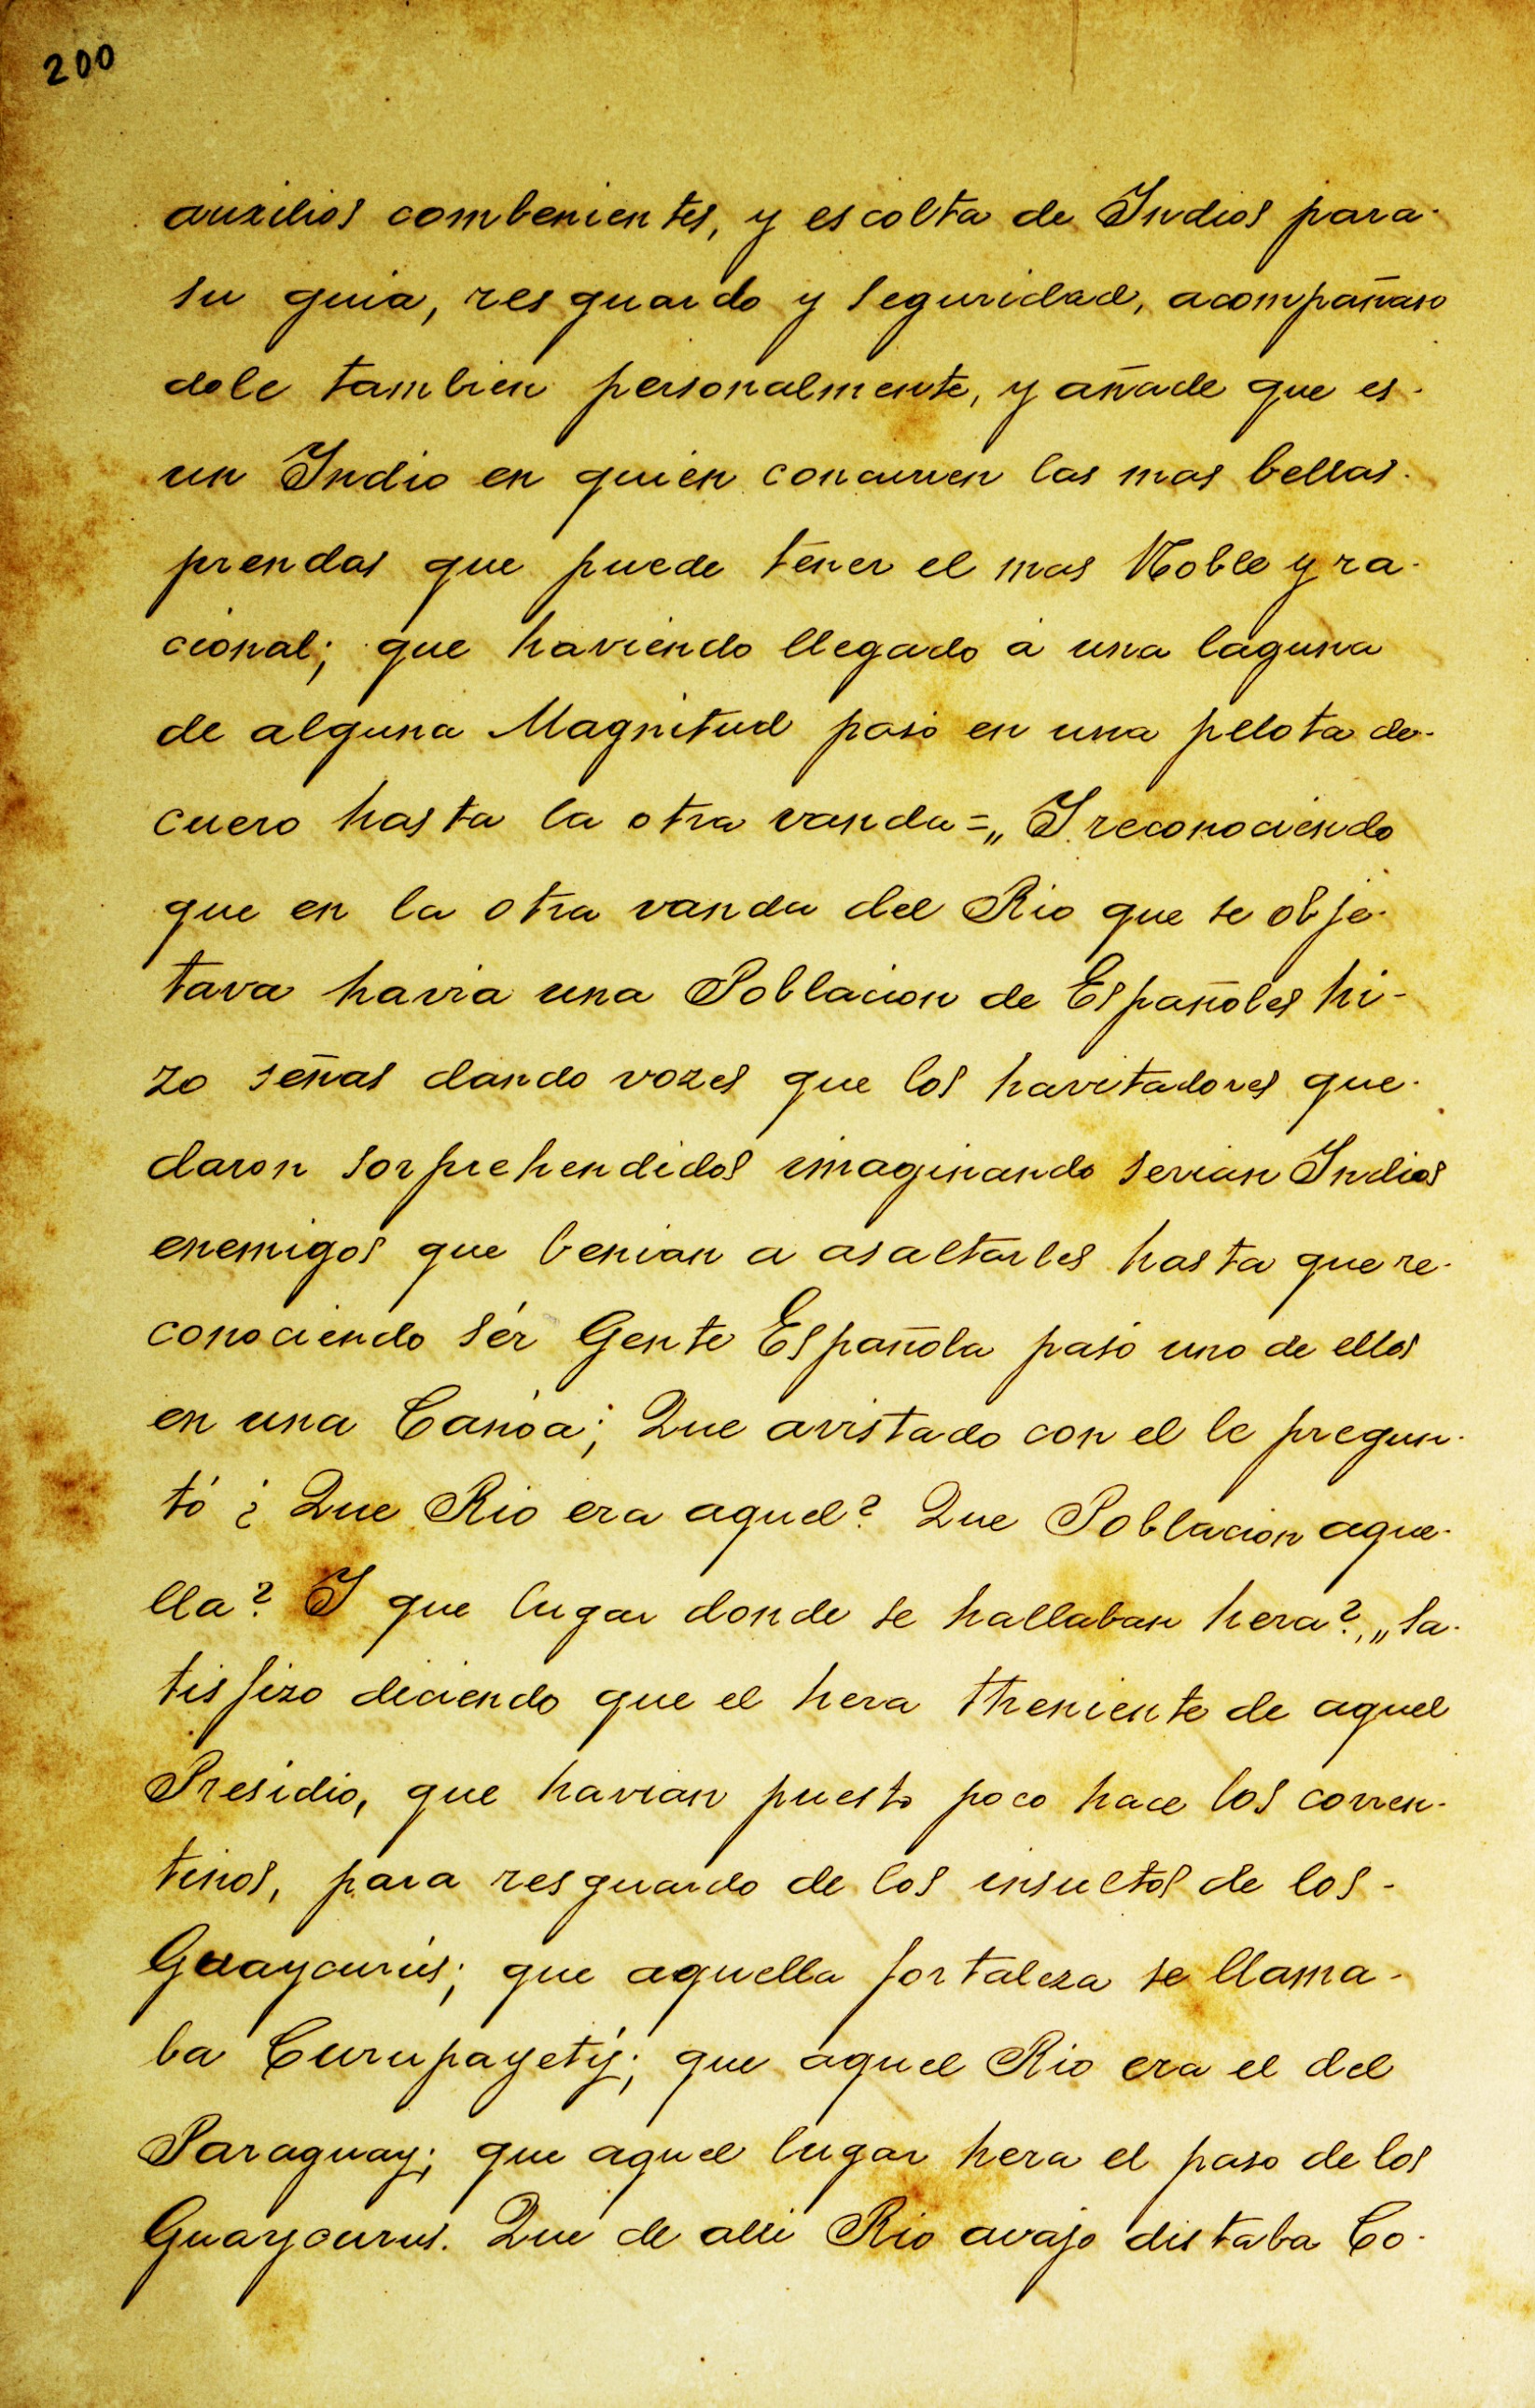 200
auxilios combenientes, y escolta de Indios para-
su guia, resguardo y seguridad, acompañan
dole tambien personalmente, y añade que es-
un Indio en quien concurren las mas bellas-
prendas que puede tener el mas Noble y ra-
cional; que haviendo llegado á una laguna
de alguna Magnitud pasó en una pelota de-
cuero hasta la otra vanda=„ I reconociendo
que en la otra vanda del Rio que se obje-
tava havia una Poblacion de Españoles hi-
zo señas dando vozes que los havitadores que-
daron sorprehendidos imaginando serian Indios
enemigos que benian a asaltarles hasta que re-
conociendo sér Gente Española pasó uno de ellos
en una Canóa; Que avistado con el le pregun-
tó ¿ Que Rio era aquel? Que Poblacion aque-
lla? I que lugar donde se hallaban hera?„ sa-
tisfizo diciendo que el hera Theniente de aquel
Presidio, que havian puesto poco hace los corren-
tinos, para resguardo de los insultos de los-
Guaycurús; que aquella fortaleza se llama-
ba Curupayetý; que aquel Rio era el del
Paraguay; que aquel lugar hera el paso de los
Guaycurus. Que de alli Rio avajo distaba Co-